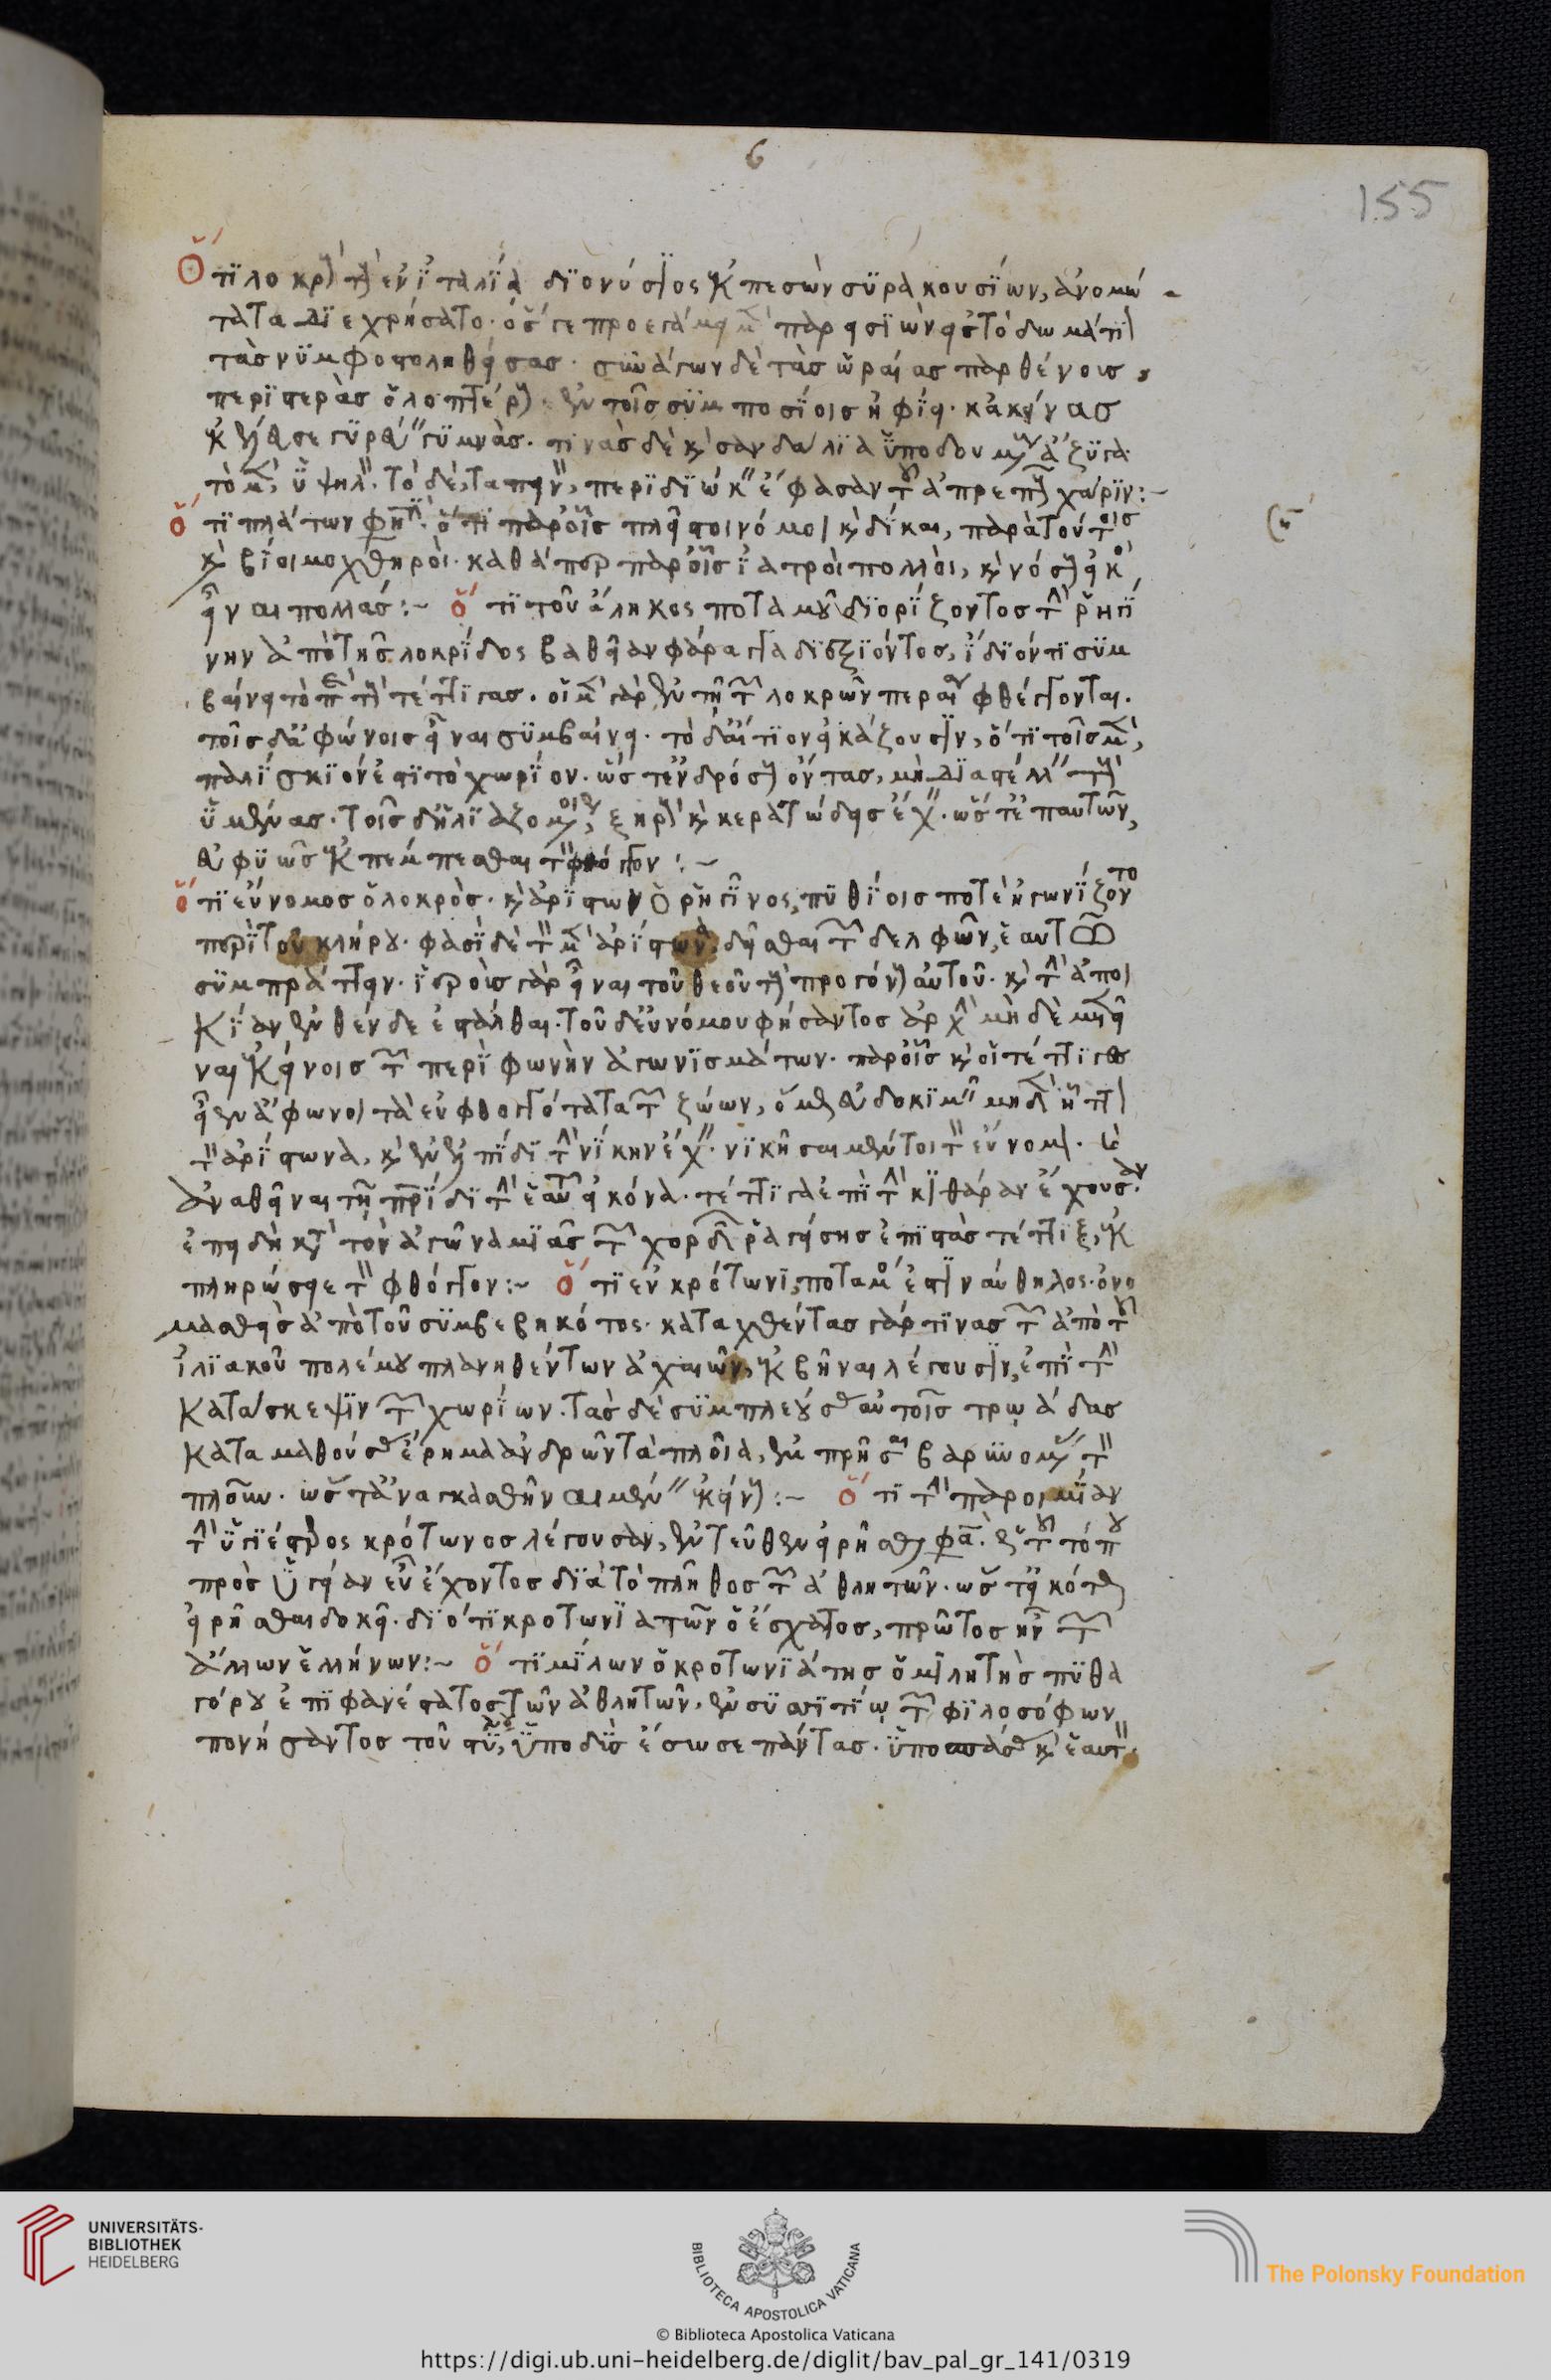 6
155
Ὅτι λοκροὺς τοὺς ἐν ἰταλία διονύσιος ἐκπεσὼν συρακουσίων, ἀνομώ
τατα διεχρήσατο· ὅς γε προεγάμει μὲν παρεισιὼν εἰς τὸ δωμάτιον
τὰς νυμφοστοληθείσας· συνάγων δὲ τὰς ὡραίας παρθένους,
περιστερὰς ὁλοπτέρους ἐν τοῖς συμποσίοις ἠφίει· κἀκείνας
ἐκέλευσε γυρεύειν γυμνάς· τινὰς δὲ καὶ σανδάλια ὑποδουμένας ἄζυγα
τὸ μὲν ὑψηλὸν τὸ δὲ ταπεινὸν, περιδιώκειν ἔφασαν τοῦ ἀπρεποῦς χάριν:~
ὅτι πλάτων φησὶν ὅτι παροῖς πλεῖστοι νόμοι καὶ δίκαι, παρὰ τούτοις
καὶ βίοι μοχθηροί· καθάπερ παροῖς ἰατροὶ πολλοὶ, καὶ νόσους εἰκὸς
εἶναι πολλάς:~ ὅτι τοῦ ἄληκος ποταμοῦ διορίζοντος τὴν ῥηγί
νην ἀπὸ τῆς λοκρίδος βαθεῖαν φάραγγα διεξιόντος, ἴδιόν τι συμ
βαίνει τὸ περὶ τοὺς τέττιγας. οἱ μὲν γὰρ ἐν τῆ τῶν λοκρῶν περαία φθέγγονται.
τοῖς δ' ἀφώνοις εἶναι συμβαίνει. τὸ δ' αἴτιον εἰκάζουσιν, ὅτι τοῖς μὲν,
παλίσκιόν ἐστι τὸ χωρίον. ὥστ' ἐνδρόσους ὄντας, μὴ διαστέλλειν τοὺς
ὑμένας. τοῖς δ' ἡλιαζομένοις, ξηροὺς καὶ κερατώδεις ἔχειν. ὥστ' ἐπ' αὐτῶν,
εὐφυῶς ἐκπέμπεσθαι τὸν φθόγγον:~
ὅτι εὔνομος ὁ λοκρὸς. καὶ ἀρίστων ὁ ῥηγῖνος, πυθίοις ποτὲ ἠγωνίζοντο
περὶ τοῦ κλήρου. φασὶ δὲ τὸν μὲν ἀρίστωνα δεῖσθαι τῶν δελφῶν, ἑαυτῶ
συμπράττειν. ἱεροὺς γὰρ εἶναι τοῦ θεοῦ τοὺς προγόνους αὐτοῦ. καὶ τὴν ἀποι
κίαν ἐνθένδε ἐστάλθαι. τοῦ δ' εὐνόμου φήσαντος ἀρχὴν μηδὲ μετεῖ
ναι ἐκείνοις τῶν περὶ φωνὴν ἀγωνισμάτων. παροῖς καὶ οἱ τέττιγες
εἶεν ἄφωνοι τὰ εὐφθογγότατα τῶν ζώων, ὅμως εὐδοκιμεῖν μηδὲν ἧττον
τὸν ἀρίστωνα, καὶ ἐν ἐλπίδι τὴν νίκην ἔχειν. νικῆσαι μέντοι τὸν εὔνομον. καὶ
ἀναθεῖναι τῆ πατρίδι τὴν ἑαυτοῦ εἰκόνα. τέττιγα ἐπὶ τὴν κιθάραν ἔχουσαν
ἐπειδὴ κατὰ τὸν ἀγῶνα μιᾶς τῶν χορδῶν ῥαγείσης ἐπιστὰς τέττιξ, ἐκ
πληρώσειε τὸν φθόγγον:~ ὅτι ἐν κρότωνι, ποταμός ἐστιν αὐθηλος. ὀνο
μασθεὶς ἀπὸ τοῦ συμβεβηκότος. καταχθέντας γάρ τινας τῶν ἀπὸ τοῦ
ἰλιακοῦ πολέμου πλανηθέντων ἀχαιῶν, ἐκβῆναι λέγουσιν, ἐπὶ τὴν
κατάσκεψιν τῶν χωρίων. τὰς δὲ συμπλεούσας αὐτοῖς τρωάδας
καταμαθούσας ἔρημα ἀνδρῶν τὰ πλοῖα, ἐμπρῆσαι βαρυνομένας τὸν
πλοῦν. ὥστ' ἀναγκασθῆναι μένειν ἐκείνους:~ ὅτι τὴν παροιμίαν
τὴν ὑγιέστερος κρότωνος λέγουσαν, ἐντεῦθεν εἰρῆσθαι φασὶ. ἐκ τοῦ τόπου
πρὸς ὑγείαν εὖ ἔχοντος διὰ τὸ πλῆθος τῶν ἀθλητῶν. ὥστ' εἰκότως
εἰρῆσθαι δοκεῖ. διότι κροτωνιατῶν ὁ ἔσχατος, πρῶτος ἦν τῶν
ἄλλων ἑλλήνων:~ ὅτι μίλων ὁ κροτωνιάτης ὁμιλητὴς πυθα
γόρου ἐπιφανέστατος τῶν ἀθλητῶν, ἐν συσσιτίω τῶν φιλοσόφων,
πονήσαντος τοῦ στύλου, ὑποδὺς ἔσωσε πάντας. ὑποσπάσας καὶ ἑαυτὸν.
UNIVERSITÄTS-
BIBLIOTHEK
HEIDELBERG
BIBLIOTECA APOSTOLICA VATICANA
The Polonsky Foundation
© Biblioteca Apostolica Vaticana
https://digi.ub.uni-heidelberg.de/diglit/bav_pal_gr_141/0319